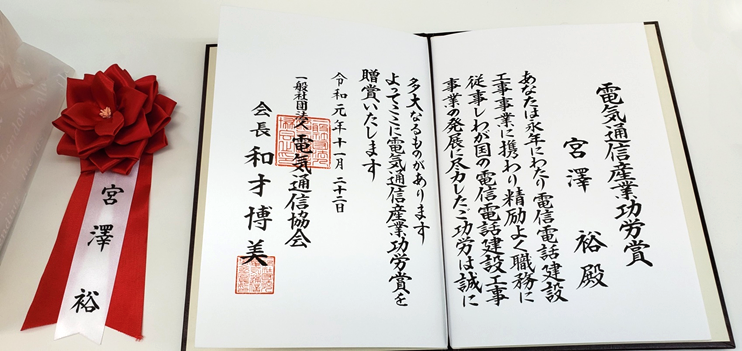 電気通信産業功労賞
宮澤 裕殿
あなたは永年にわたり電信電話建設
工事事業に携わり精励よく職務に
従事しわが国の電信電話建設工事
事業の発展に尽力したご功労は誠に
多大なるものがあります
よってここに電気通信産業功労賞を
贈賞いたします
令和元年十一月二十二日
一般社団法人電気通信協会
会長和才博美
宮澤 裕